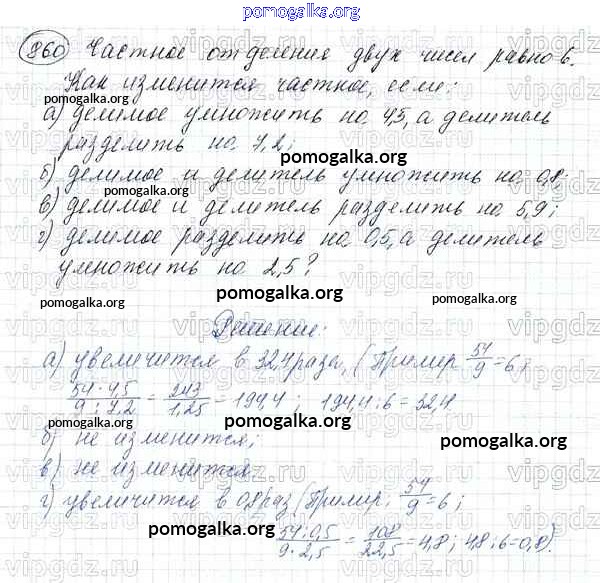 pomogalka.org
860 Частное от деления двух чисел равно 6.
Как изменится частное, если:
pomogalka.org
а) делимое умножить на 4,5, а делитель
разделить на 7,2;
pomogalka.org
б) делимое и делитель умножить на 0,8;
pomogalka.org
в) делимое и делитель разделить на 5,9;
pomogalka.org
г) делимое разделить на 0,5, а делитель
умножить на 2,5?
pomogalka.org
pomogalka.org
pomogalka.org
Решение:
а) увеличится в 32,4 раза, (Пример 54/9 = 6;
pomogalka.org
54 · 4,5 / 9 : 7,2 = 243 / 1,25 = 194,4; 194,4 : 6 = 32,4
б) не изменится;
pomogalka.org
pomogalka.org
в) не изменится
г) увеличится в 0,8 раз (Пример: 54/9 = 6;
pomogalka.org
pomogalka.org
54 : 0,5 / 9 · 2,5 = 108 / 22,5 = 4,8; 4,8 : 6 = 0,8).